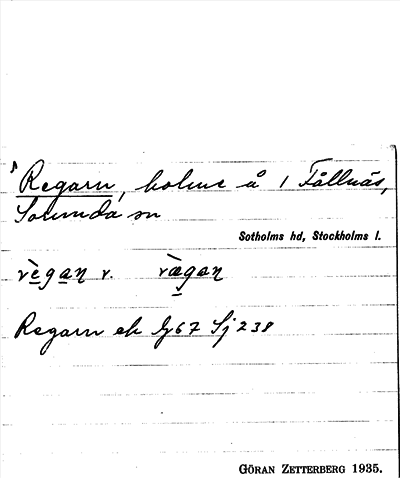 Regarn, holme å 1 Fållnäs,
Sorunda sn
Sotholms hd, Stockholms l.
règaṇ v. rægaṇ
Regarn ek G67 Sj 238
GÖRAN ZETTERBERG 1935.